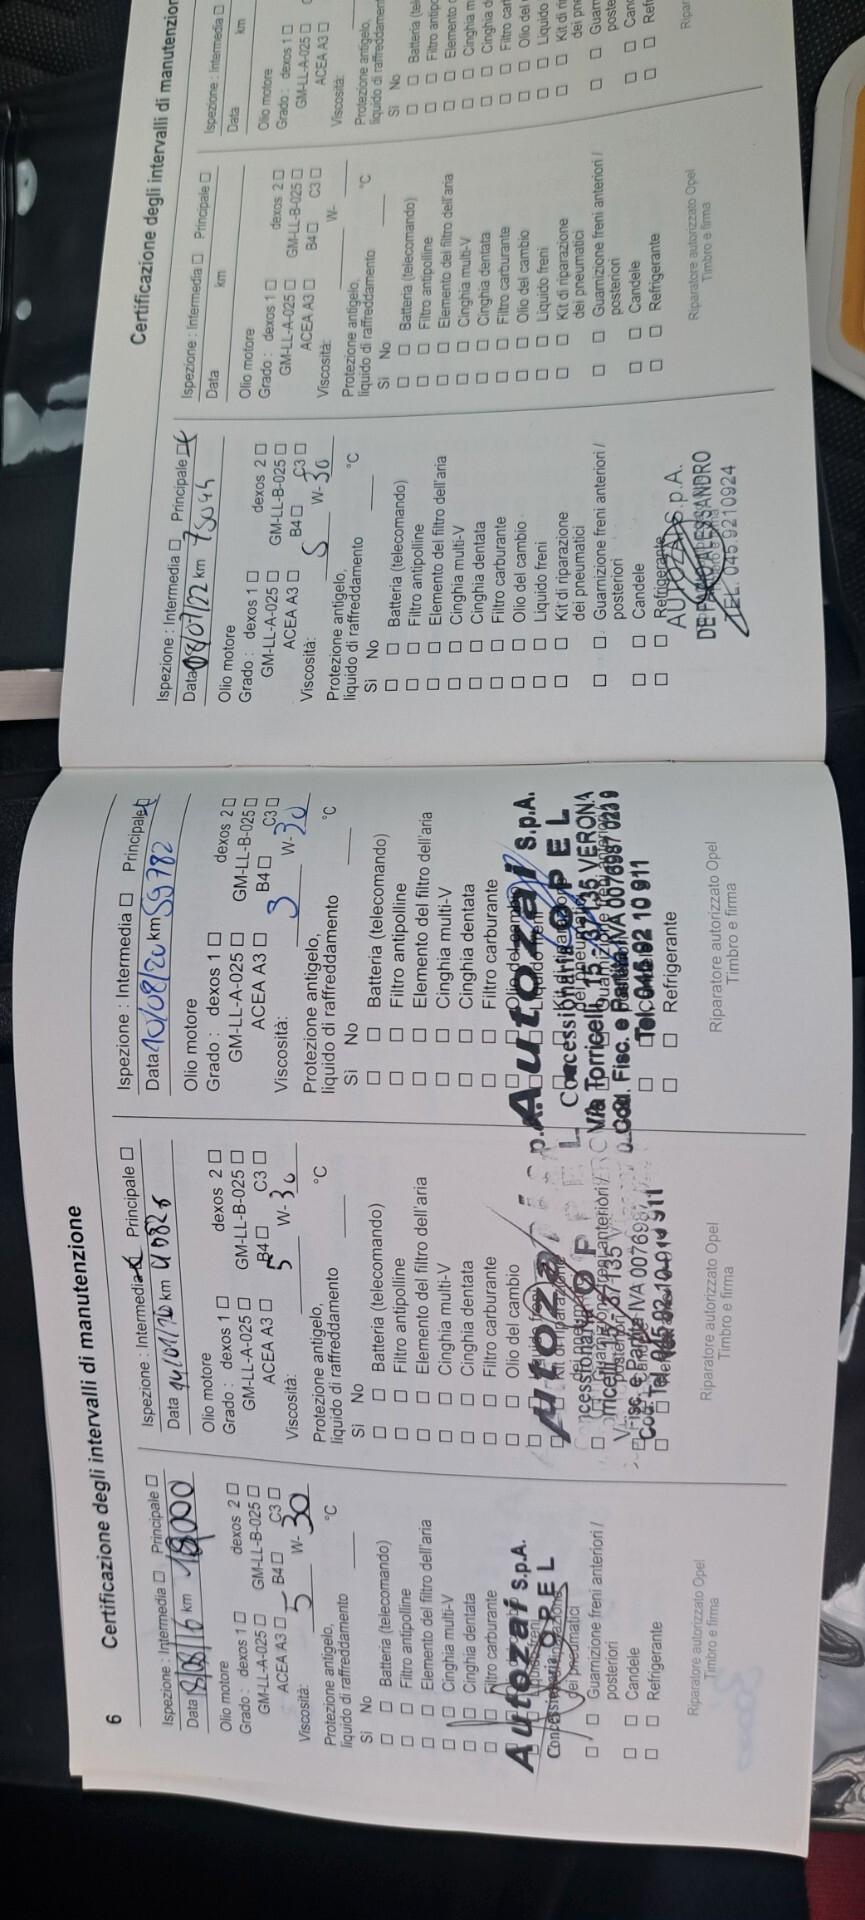 6
Certificazione degli intervalli di manutenzione
Ispezione : Intermedia ☐ Principale ☐
Data 18/08/16 km 18000
Olio motore
Grado : dexos 1 ☐ dexos 2 ☐
GM-LL-A-025 ☐ GM-LL-B-025 ☐
ACEA A3 ☐ B4 ☐ C3 ☐
Viscosità: 5 W- 30
Protezione antigelo,
liquido di raffreddamento °C
Sì No
☐ ☐ Batteria (telecomando)
☐ ☐ Filtro antipolline
☐ ☐ Elemento del filtro dell'aria
☐ ☐ Cinghia multi-V
☐ ☐ Cinghia dentata
☐ ☐ Filtro carburante
Autozai S.p.A.
Concessionaria OPEL
dei pneumatici
☐ ☐ Guarnizione freni anteriori /
posteriori
☐ ☐ Candele
☐ ☐ Refrigerante
Riparatore autorizzato Opel
Timbro e firma
Ispezione : Intermedia ☒ Principale ☐
Data km 40826
Olio motore
Grado : dexos 1 ☐ dexos 2 ☐
GM-LL-A-025 ☐ GM-LL-B-025 ☐
ACEA A3 ☐ B4 ☐ C3 ☐
Viscosità: 5 W- 30
Protezione antigelo,
liquido di raffreddamento °C
Sì No
☐ ☐ Batteria (telecomando)
☐ ☐ Filtro antipolline
☐ ☐ Elemento del filtro dell'aria
☐ ☐ Cinghia multi-V
☐ ☐ Cinghia dentata
☐ ☐ Filtro carburante
☐ ☐ Olio del cambio
Riparatore autorizzato Opel
Timbro e firma
Ispezione : Intermedia ☐ Principale ☒
Data 10/08/20 km 59782
Olio motore
Grado : dexos 1 ☐ dexos 2 ☐
GM-LL-A-025 ☐ GM-LL-B-025 ☐
ACEA A3 ☐ B4 ☐ C3 ☐
Viscosità: 3 W- 30
Protezione antigelo,
liquido di raffreddamento °C
Sì No
☐ ☐ Batteria (telecomando)
☐ ☐ Filtro antipolline
☐ ☐ Elemento del filtro dell'aria
☐ ☐ Cinghia multi-V
☐ ☐ Cinghia dentata
☐ ☐ Filtro carburante
Autozai S.p.A.
Concessionaria OPEL
Via Torricelli, 15 - 37135 VERONA
Cod. Fisc. e Partita IVA 0076987 023 9
Tel. 045.82 10 911
☐ ☐ Refrigerante
Riparatore autorizzato Opel
Timbro e firma
Certificazione degli intervalli di manutenzion
Ispezione : Intermedia ☐ Principale ☒
Data 08/07/22 km 75044
Olio motore
Grado : dexos 1 ☐ dexos 2 ☐
GM-LL-A-025 ☐ GM-LL-B-025 ☐
ACEA A3 ☐ B4 ☐ C3 ☐
Viscosità: 5 W- 30
Protezione antigelo,
liquido di raffreddamento °C
Sì No
☐ ☐ Batteria (telecomando)
☐ ☐ Filtro antipolline
☐ ☐ Elemento del filtro dell'aria
☐ ☐ Cinghia multi-V
☐ ☐ Cinghia dentata
☐ ☐ Filtro carburante
☐ ☐ Olio del cambio
☐ ☐ Liquido freni
☐ ☐ Kit di riparazione
dei pneumatici
☐ ☐ Guarnizione freni anteriori /
posteriori
☐ ☐ Candele
☐ ☐ Refrigerante
AUTOZAI S.p.A.
ALESSANDRO
TEL. 045.9210924
Ispezione : Intermedia ☐ Principale ☐
Data km
Olio motore
Grado : dexos 1 ☐ dexos 2 ☐
GM-LL-A-025 ☐ GM-LL-B-025 ☐
ACEA A3 ☐ B4 ☐ C3 ☐
Viscosità: W-
Protezione antigelo,
liquido di raffreddamento °C
Sì No
☐ ☐ Batteria (telecomando)
☐ ☐ Filtro antipolline
☐ ☐ Elemento del filtro dell'aria
☐ ☐ Cinghia multi-V
☐ ☐ Cinghia dentata
☐ ☐ Filtro carburante
☐ ☐ Olio del cambio
☐ ☐ Liquido freni
☐ ☐ Kit di riparazione
dei pneumatici
☐ ☐ Guarnizione freni anteriori /
posteriori
☐ ☐ Candele
☐ ☐ Refrigerante
Riparatore autorizzato Opel
Timbro e firma
Ispezione : Intermedia ☐
Data km
Olio motore
Grado : dexos 1 ☐
GM-LL-A-025 ☐
ACEA A3 ☐
Viscosità:
Protezione antigelo,
liquido di raffreddament
Sì No
☐ ☐ Batteria (tel
☐ ☐ Filtro antipo
☐ ☐ Elemento d
☐ ☐ Cinghia m
☐ ☐ Cinghia d
☐ ☐ Filtro car
☐ ☐ Olio del
☐ ☐ Liquido
☐ ☐ Kit di ri
dei pne
☐ ☐ Guarn
poste
☐ ☐ Cand
☐ ☐ Refr
Ripar